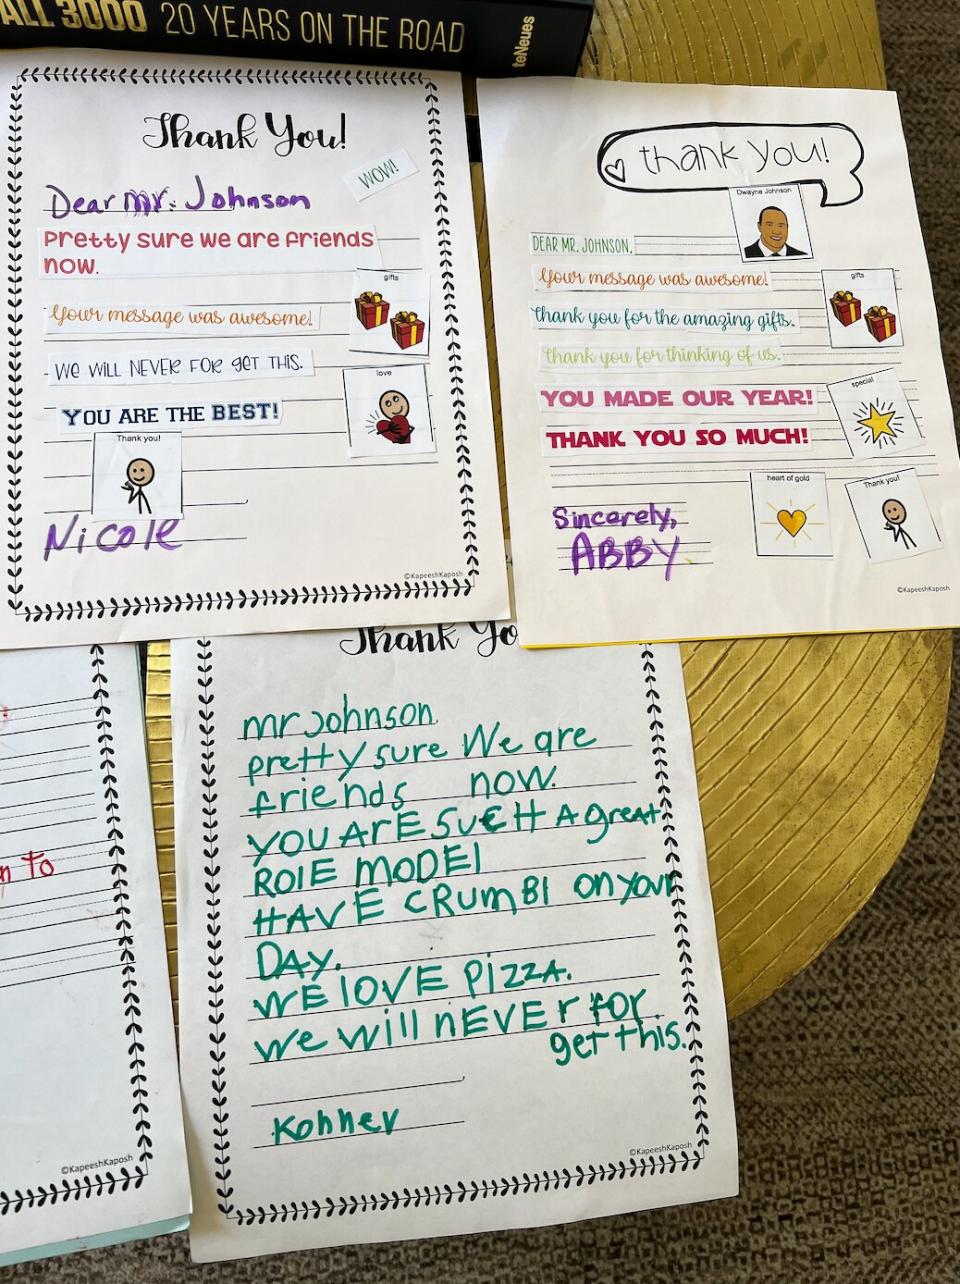 ALL 3000 20 YEARS ON THE ROAD
teNeues
Thank You!
WOW!
Dear Mr. Johnson
Pretty sure we are friends
now.
gifts
Your message was awesome!
WE WILL NEVER FOR get THIS.
love
YOU ARE THE BEST!
Thank you!
Nicole
©KapeeshKaposh
thank you!
Dwayne Johnson
DEAR MR. JOHNSON,
Your message was awesome!
gifts
Thank you for the amazing gifts.
thank you for thinking of us.
YOU MADE OUR YEAR!
special
THANK YOU SO MUCH!
heart of gold
Thank you!
Sincerely,
ABBY
©KapeeshKaposh
Thank Yo
mr Johnson
pretty sure We are
friends now.
YOU ArE SUCH A great
ROlE MODEl
HAVE CRUmBl on your
DAY.
WE lOVE PiZZA.
We will nEVEr for
get this.
Kohner
©KapeeshKaposh
n To
©KapeeshKaposh